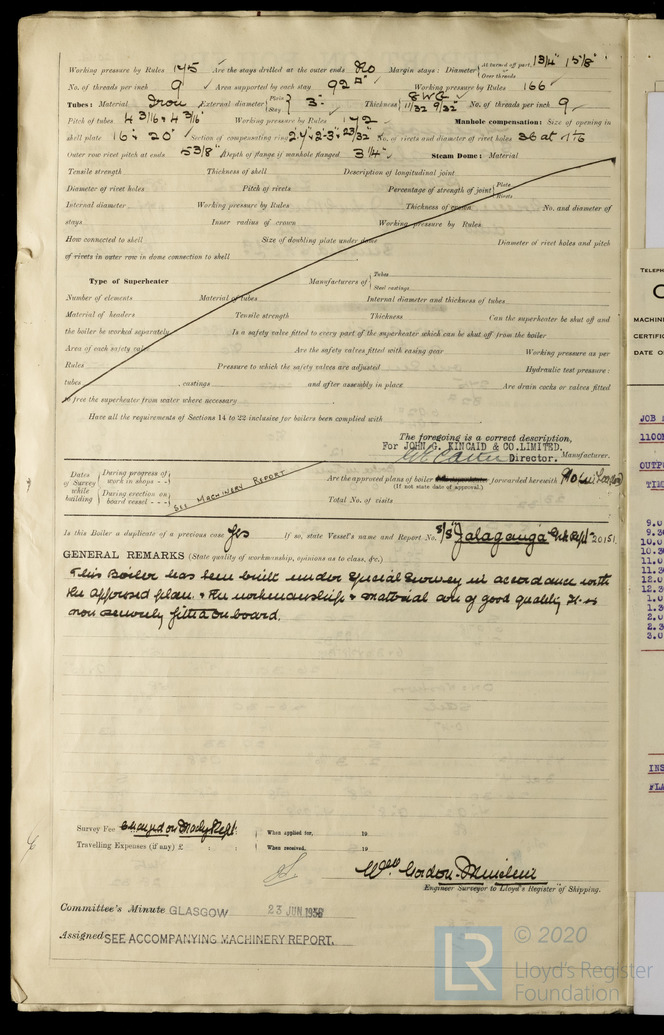 Working pressure by Rules 175 Are the stays drilled at the outer ends No Margin stays: Diameter { At turned off part, 1 3/4" 1 5/8"
Over threads
No. of threads per inch 9 Area supported by each stay 92 □" Working pressure by Rules 166
Tubes: Material Iron External diameter { Plain Stay } 3" Thickness { 8 WG 11/32 9/32" No. of threads per inch 9
Pitch of tubes 4 3/16 × 4 3/16 Working pressure by Rules 172 Manhole compensation: Size of opening in
shell plate 16" × 20" Section of compensating ring No. of rivets and diameter of rivet holes 36 at 1 1/16
Outer row rivet pitch at ends 5 3/8" Depth of flange if manhole flanged 3 1/4" Steam Dome: Material
Tensile strength Thickness of shell Description of longitudinal joint
Diameter of rivet holes Pitch of rivets Percentage of strength of joint { Plate
Rivets
Internal diameter Working pressure by Rules Thickness of crown No. and diameter of
stays Inner radius of crown Working pressure by Rules
How connected to shell Size of doubling plate under dome Diameter of rivet holes and pitch
of rivets in outer row in dome connection to shell
Type of Superheater Manufacturers of { Tubes
Steel castings
Number of elements Material of tubes Internal diameter and thickness of tubes
Material of headers Tensile strength Thickness Can the superheater be shut off and
the boiler be worked separately Is a safety valve fitted to every part of the superheater which can be shut off from the boiler
Area of each safety valve Are the safety valves fitted with easing gear Working pressure as per
Rules Pressure to which the safety valves are adjusted Hydraulic test pressure:
tubes , castings and after assembly in place Are drain cocks or valves fitted
to free the superheater from water where necessary
Have all the requirements of Sections 14 to 22 inclusive for boilers been complied with
The foregoing is a correct description,
For JOHN G. KINCAID & CO. LIMITED.
Director. Manufacturer.
Dates of Survey while building { During progress of work in shops - -
During erection on board vessel - - -
SEE MACHINERY REPORT
Are the approved plans of boiler forwarded herewith
(If not state date of approval.)
Total No. of visits
Is this Boiler a duplicate of a previous case Yes If so, state Vessel's name and Report No. S/S "Jalaganga" Gnk Rpt 20151
GENERAL REMARKS (State quality of workmanship, opinions as to class, &c.)
This Boiler has been built under Special Survey in accordance with
the approved plan. & the workmanship & material are of good quality It is
now securely fitted on board.
Survey Fee Charged on Mchy Rept. When applied for, 19
Travelling Expenses (if any) £ : : When received, 19
Engineer Surveyor to Lloyd's Register of Shipping.
Committee's Minute GLASGOW 23 JUN 1936
Assigned SEE ACCOMPANYING MACHINERY REPORT.
TELEPH
MACHIN
CERTIFIC
DATE O
JOB
1100
OUTP
TIM
9.0
9.3
10.0
10.3
11.0
11.3
12.0
12.3
1.0
1.3
2.0
2.3
3.0
INS
FLA
LR © 2020
Lloyd's Register
Foundation